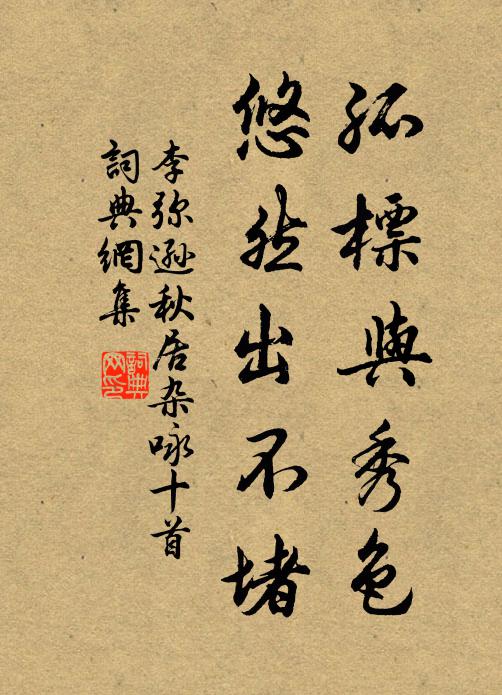 孤標與秀色
悠然出不堵
李弥遜秋居杂咏十首
詞典網集